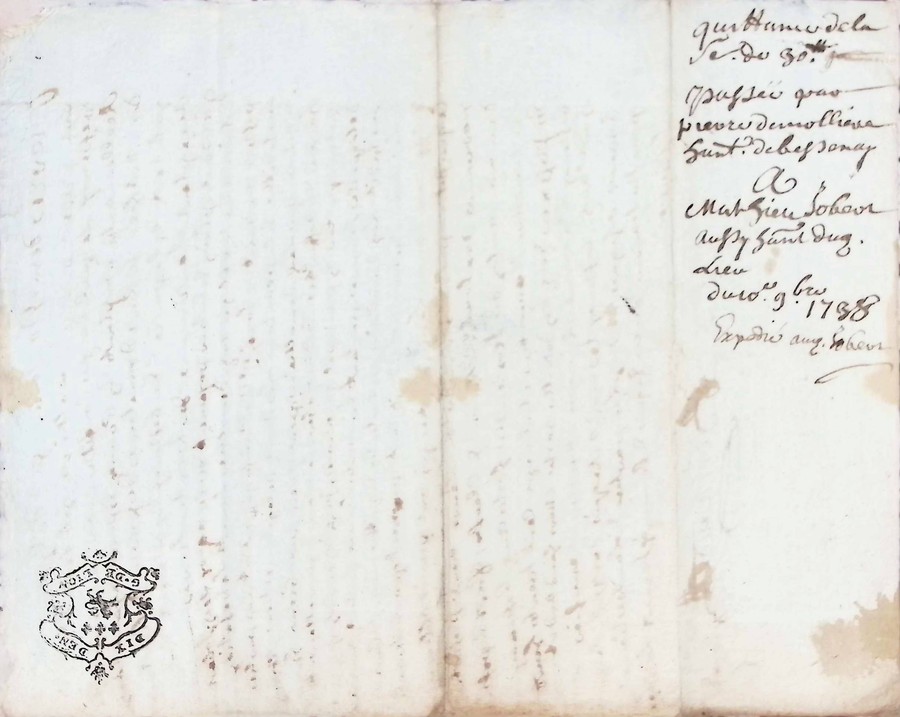 quittance de la
Se. de 30.tt
passée par
pierre demolliere
hant. de bessenay
A
Mathieu Jobert
aussy hant dud.
Lieu
du 10e. 9bre
1738
Expedié aud. Jobert
G. DE LION
DIX DENs